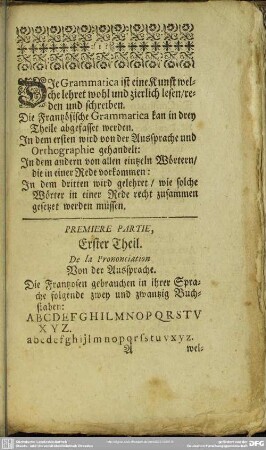 ( 1 )
DJe Grammatica ist eine Kunst wel-
che lehret wohl und zierlich lesen/ re-
den und schreiben.
Die Frantzösische Grammatica kan in drey
Theile abgefasset werden.
In dem ersten wird von der Aussprache und
Orthographie gehandelt:
In dem andern von allen eintzeln Wörtern/
die in einer Rede vorkommen:
In dem dritten wird gelehret/ wie solche
Wörter in einer Rede recht zusammen
gesetzet werden müssen.
PREMIERE PARTIE,
Erster Theil.
De la Prononciation
Von der Aussprache.
Die Frantzosen gebrauchen in ihrer Spra-
che folgende zwey und zwantzig Buch-
staben:
ABCDEFGHILMNOPQRSTV
XYZ.
abcdefghijlmnopqrſstuvxyz.
A wel-